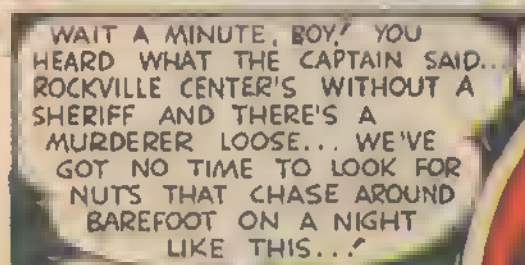 WAIT A MINUTE, BOY! YOU
HEARD WHAT THE CAPTAIN SAID...
ROCKVILLE CENTER'S WITHOUT A
SHERIFF AND THERE'S A
MURDERER LOOSE... WE'VE
GOT NO TIME TO LOOK FOR
NUTS THAT CHASE AROUND
BAREFOOT ON A NIGHT
LIKE THIS...!